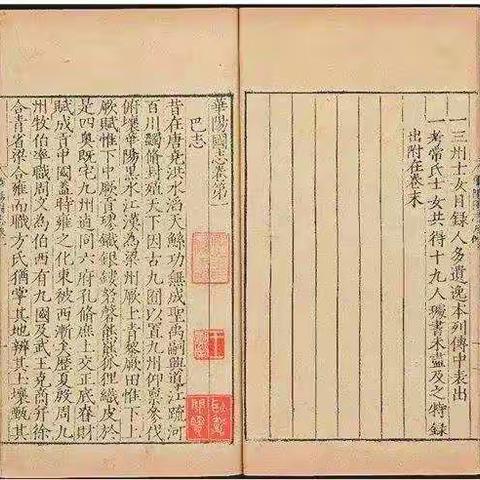 一三州士女目録人多遺逸本列傳中表出
一考常氏士女共得十九人璩書未盡及之特録
出附在卷末
華陽國志卷第一
巴志
昔在唐堯洪水滔天鯀功無成聖禹嗣興導江疏河
百川蠲脩封殖天下因古九囿以置九州仰禀參伐
俯壤華陽黑水江漢為梁州厥土青黎厥田惟下上
厥賦惟下中厥貢璆鐵銀鏤砮磬熊羆狐狸織皮於
是四奥既宅九州逌同六府孔脩庶土交正底眘財
賦成貢中國蓋時雍之化東被西漸矣歷夏殷周九
州牧伯率職周文為伯西有九國及武王克商并徐
合青省梁合雍而職方氏猶掌其地辨其土壤甄其